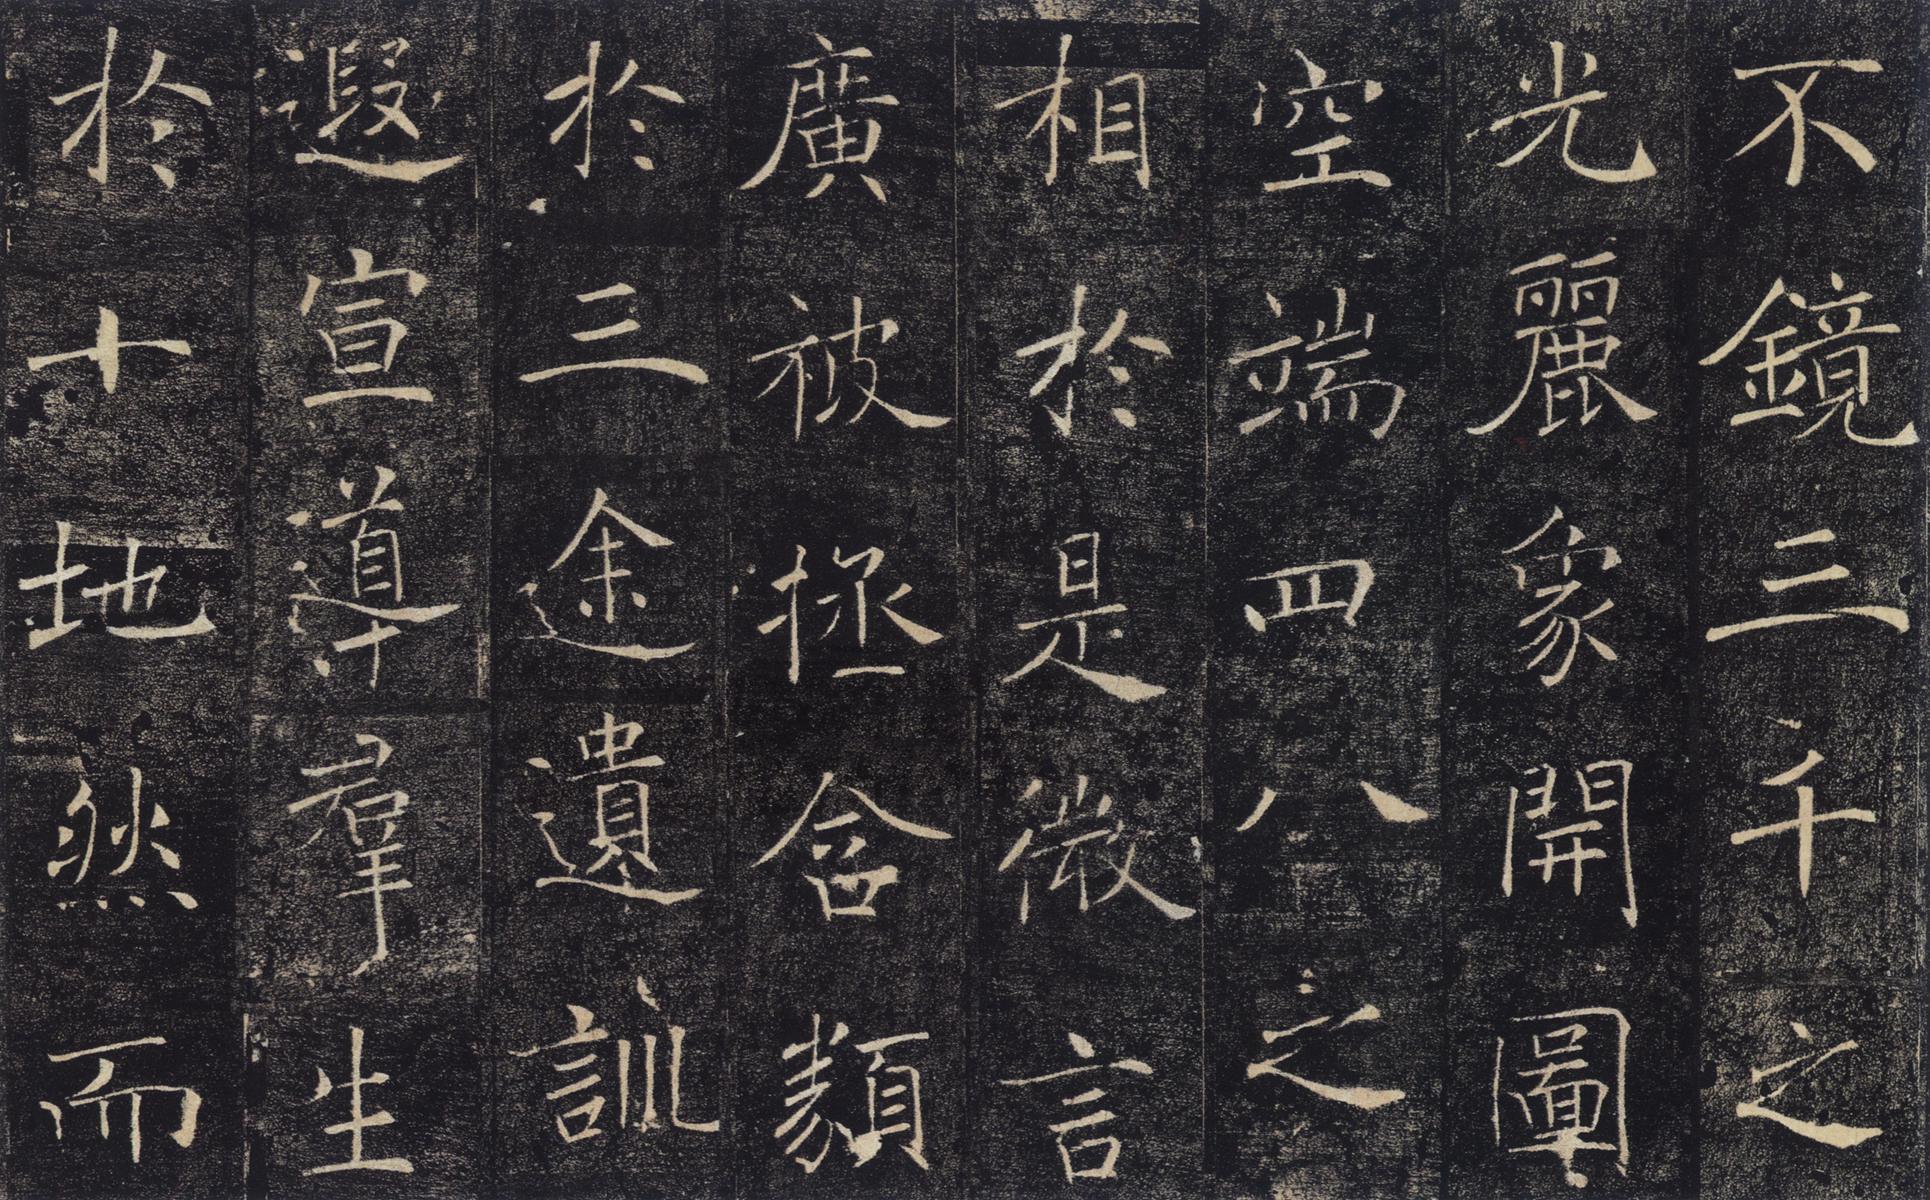 不鏡三千之
光麗象開圖
空端四八之
相於是微言
廣被拯含類
於三途遺訓
遐宣導羣生
於十地然而